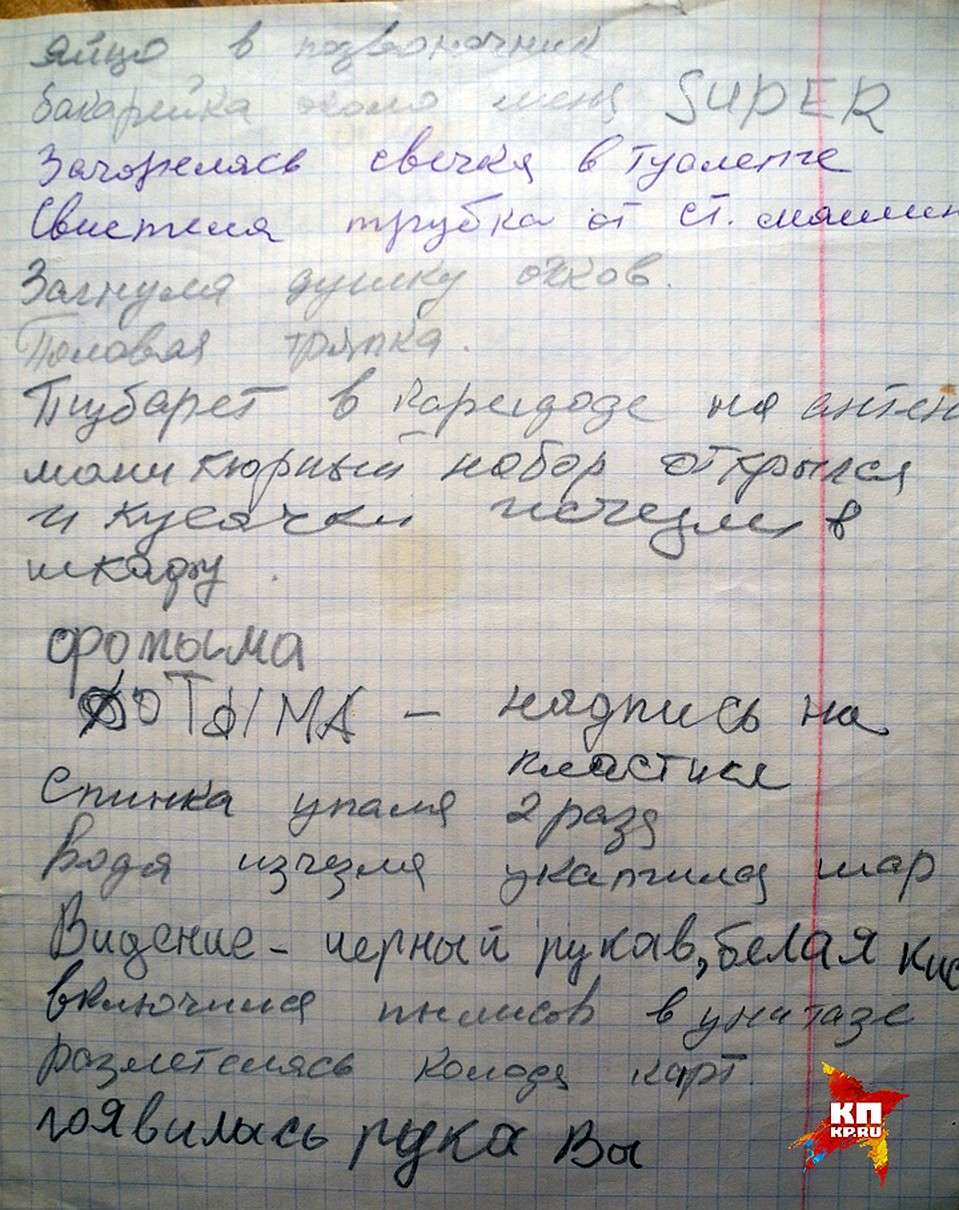 яйцо в позвоночник
бакарейка около меня SUPER
Загорелась свечка в туалете
Свистела трубка от ст. машин
Загнула душку очков.
Половая тряпка.
Тубарет в на антен
маникюрный набор открылся
и кусачки исчезли в
шкафу.
фотыма
ФОТЫМА – надпись на
пластике
Спинка упала 2 раза
Вода изчезла укатился шар
Видение - черный рукав, белая кис
включился пылисов в унитазе
разлетелась колода карт.
появилась рука Вы
КП
KP.RU